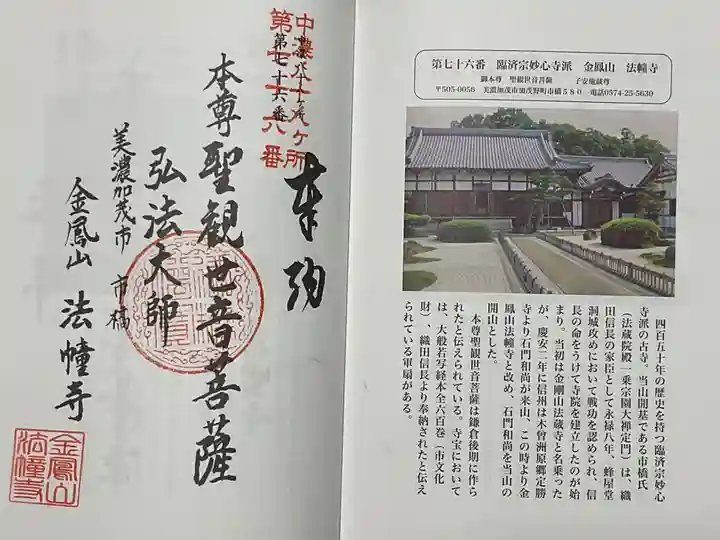 第七十六番　臨済宗妙心寺派　金鳳山　法幢寺
御本尊　聖観世音菩薩　子安地蔵尊
〒505-0056　美濃加茂市加茂野町市橋５８０　電話0574-25-5630
四百五十年の歴史を持つ臨済宗妙心
寺派の古寺。当山開基である市橋氏
（法蔵院殿一乗宗園大禅定門）は、織
田信長の家臣として永禄八年、蜂屋堂
洞城攻めにおいて戦功を認められ、信
長の命をうけて寺院を建立したのが始
まり。当初は金剛山法蔵寺と名乗った
が、慶安二年に信州は木曽洲原郷定勝
寺より石門和尚が来山、この時より金
鳳山法幢寺と改め、石門和尚を当山の
開山とした。
本尊聖観世音菩薩は鎌倉後期に作ら
れたと伝えられている。寺宝において
は、大般若写経本全六百巻（市文化
財）、織田信長より奉納されたと伝え
られている軍扇がある。
奉拝
第七十六番
本尊 聖観世音菩薩
弘法大師
美濃加茂市 市橋
金鳳山 法幢寺
金鳳山
法幢寺